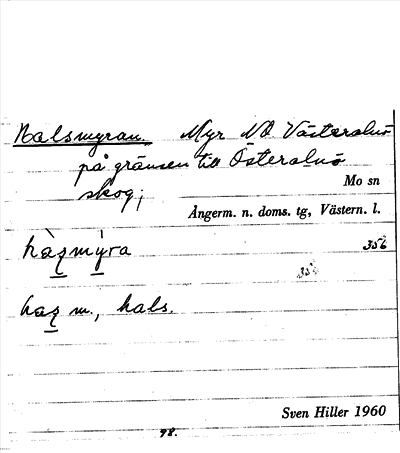 Halsmyran. Myr NO Västeralnö
på gränsen till Österalnö
skog;
Mo sn
Ångerm. n. doms. tg, Västern. l.
hàʐmỳra 356
haʐ m., hals.
Sven Hiller 1960
78.